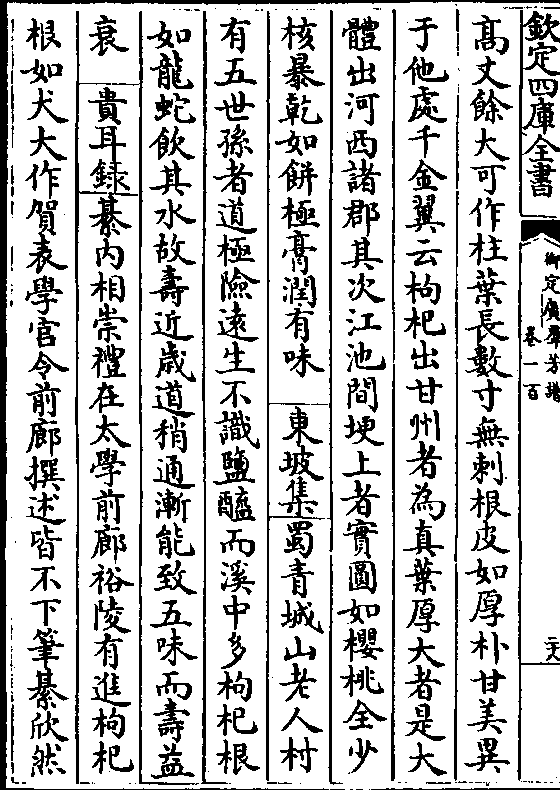 欽定四庫全書
御定廣羣芳譜 卷一百 二六
高丈餘大可作柱葉長數寸無刺根皮如厚朴甘美異
于他處千金翼云枸杞出甘州者為真葉厚大者是大
體出河西諸郡其次江池間埂上者實圓如櫻桃全少
核暴乾如餅極膏潤有味 東坡集蜀青城山老人村
有五世孫者道極險遠生不識鹽醯而溪中多枸杞根
如龍蛇飲其水故壽近歲道稍通漸能致五味而壽益
衰 貴耳錄綦內相崇禮在太學前廊裕陵有進枸杞
根如犬大作賀表學官令前廊撰述皆不下筆綦欣然